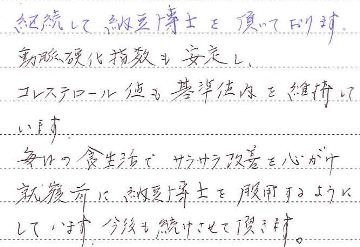 継続して納豆博士を頂いております。
動脈硬化指数も安定し、
コレステロール値も基準値内を維持して
います。
毎日の食生活でサラサラ改善を心がけ
就寝前に納豆博士を服用するように
しています。今後も続けさせて頂きます。